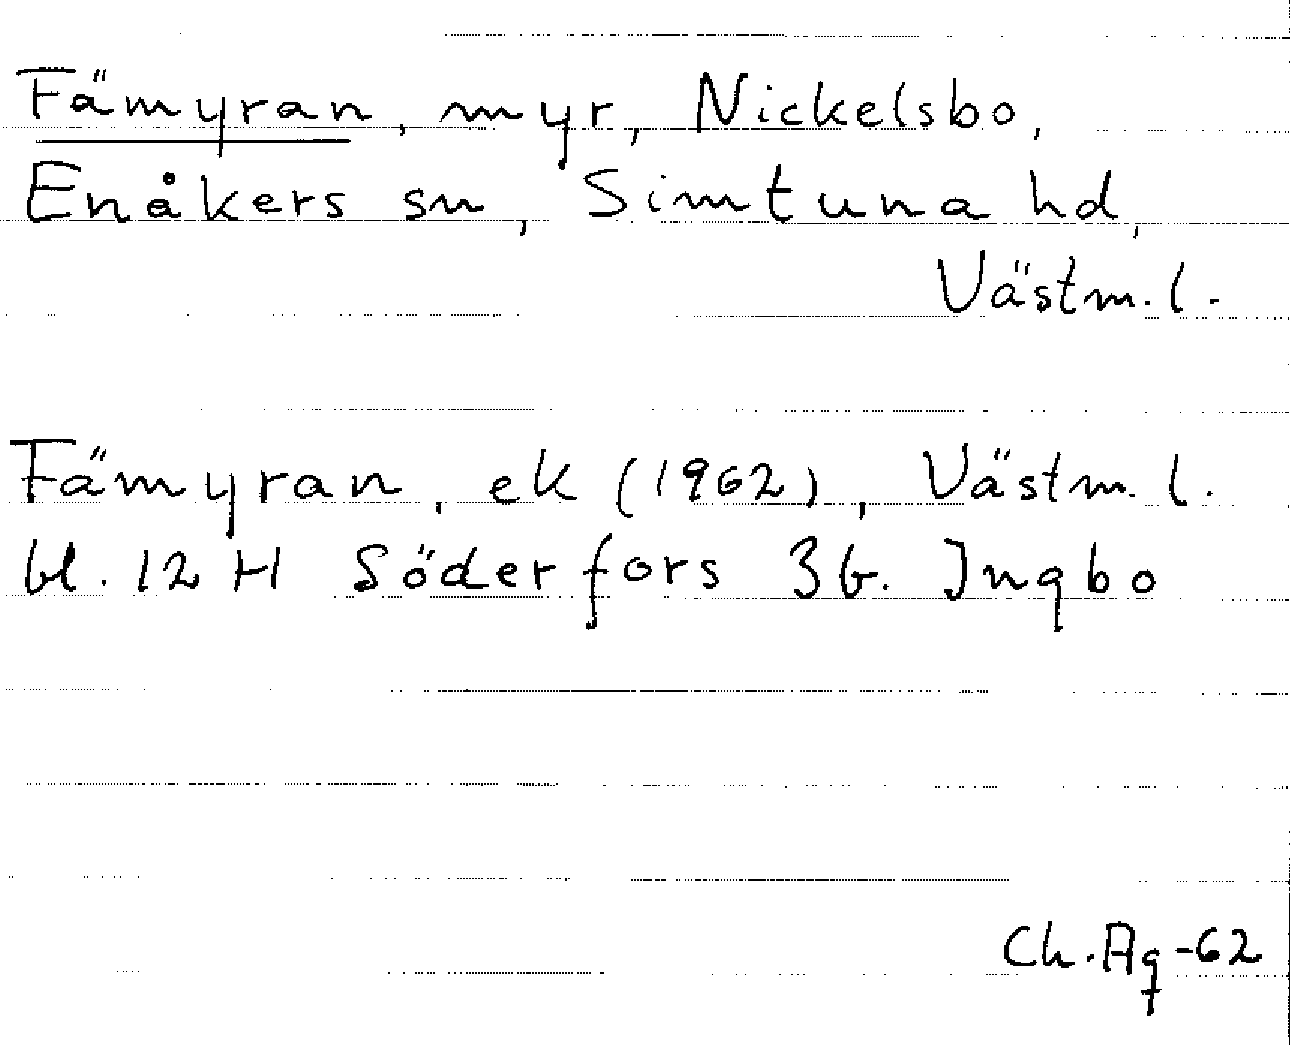 Fämyran, myr, Nickelsbo,
Enåkers sn, Simtuna hd,
Västm. l.
Fämyran, ek (1962), Västm. l.
bl. 12 H Söderfors 3b. Ingbo
Ch. Ag -62